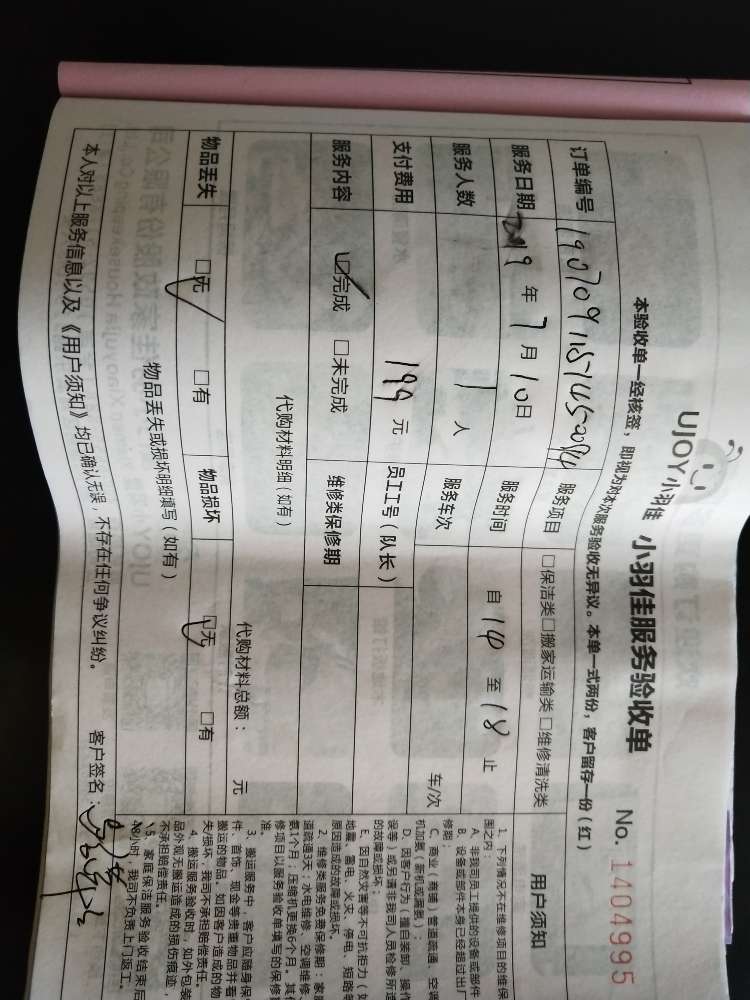 UJOY小羽佳 小羽佳服务验收单 No. 1404995
本验收单一经核签，即视为对本次服务验收无异议。本单一式两份，客户留存一份（红）
订单编号 服务项目 □保洁类□搬家运输类□维修清洗类
服务日期 2019 年 7 月 10 日 服务时间 自 14 至 18 止
服务人数 1 人 服务车次 车/次
支付费用 199 元 员工工号（队长）
服务内容 ☑完成 □未完成 维修类保修期
代购材料明细（如有） 代购材料总额： 元
物品丢失 ☑无 □有 物品损坏 ☑无 □有
物品丢失或损坏明细填写（如有）
本人对以上服务信息以及《用户须知》均已确认无误，不存在任何争议纠纷。 客户签名：
用户须知
1、下列情况不在维修项目的维保
围之内：
A、非我司员工提供的设备或部件
B、设备或部件本身已经超过出厂
修期
C、商业（商铺）管道疏通、空调
机加氟（新机或漏氟）
D、因用户行为（擅自装卸、操作
误等）或另请非我司人员检修所造
的故障或损坏；
E、因自然灾害等不可抗拒力（如
地震、雷电、火灾、停电、短路等
原因造成的故障或损坏。
2、维修类服务免费保修期：家庭
道疏通3天；水电维修、空调维修
氨1个月；压缩机更换6个月。其他
修项目以服务验收单填写的保修期
准。
3、搬运服务中，客户应随身保
件、首饰、现金等贵重物品并看
搬运的物品。如因客户造成的物
失/损坏，我司不承担赔偿责任。
4、搬运服务验收时，如外包装
品外观无搬运造成的损伤痕迹，
不承担赔偿责任。
5、家庭保洁服务验收结束后
48小时，我司不负责上门返工。